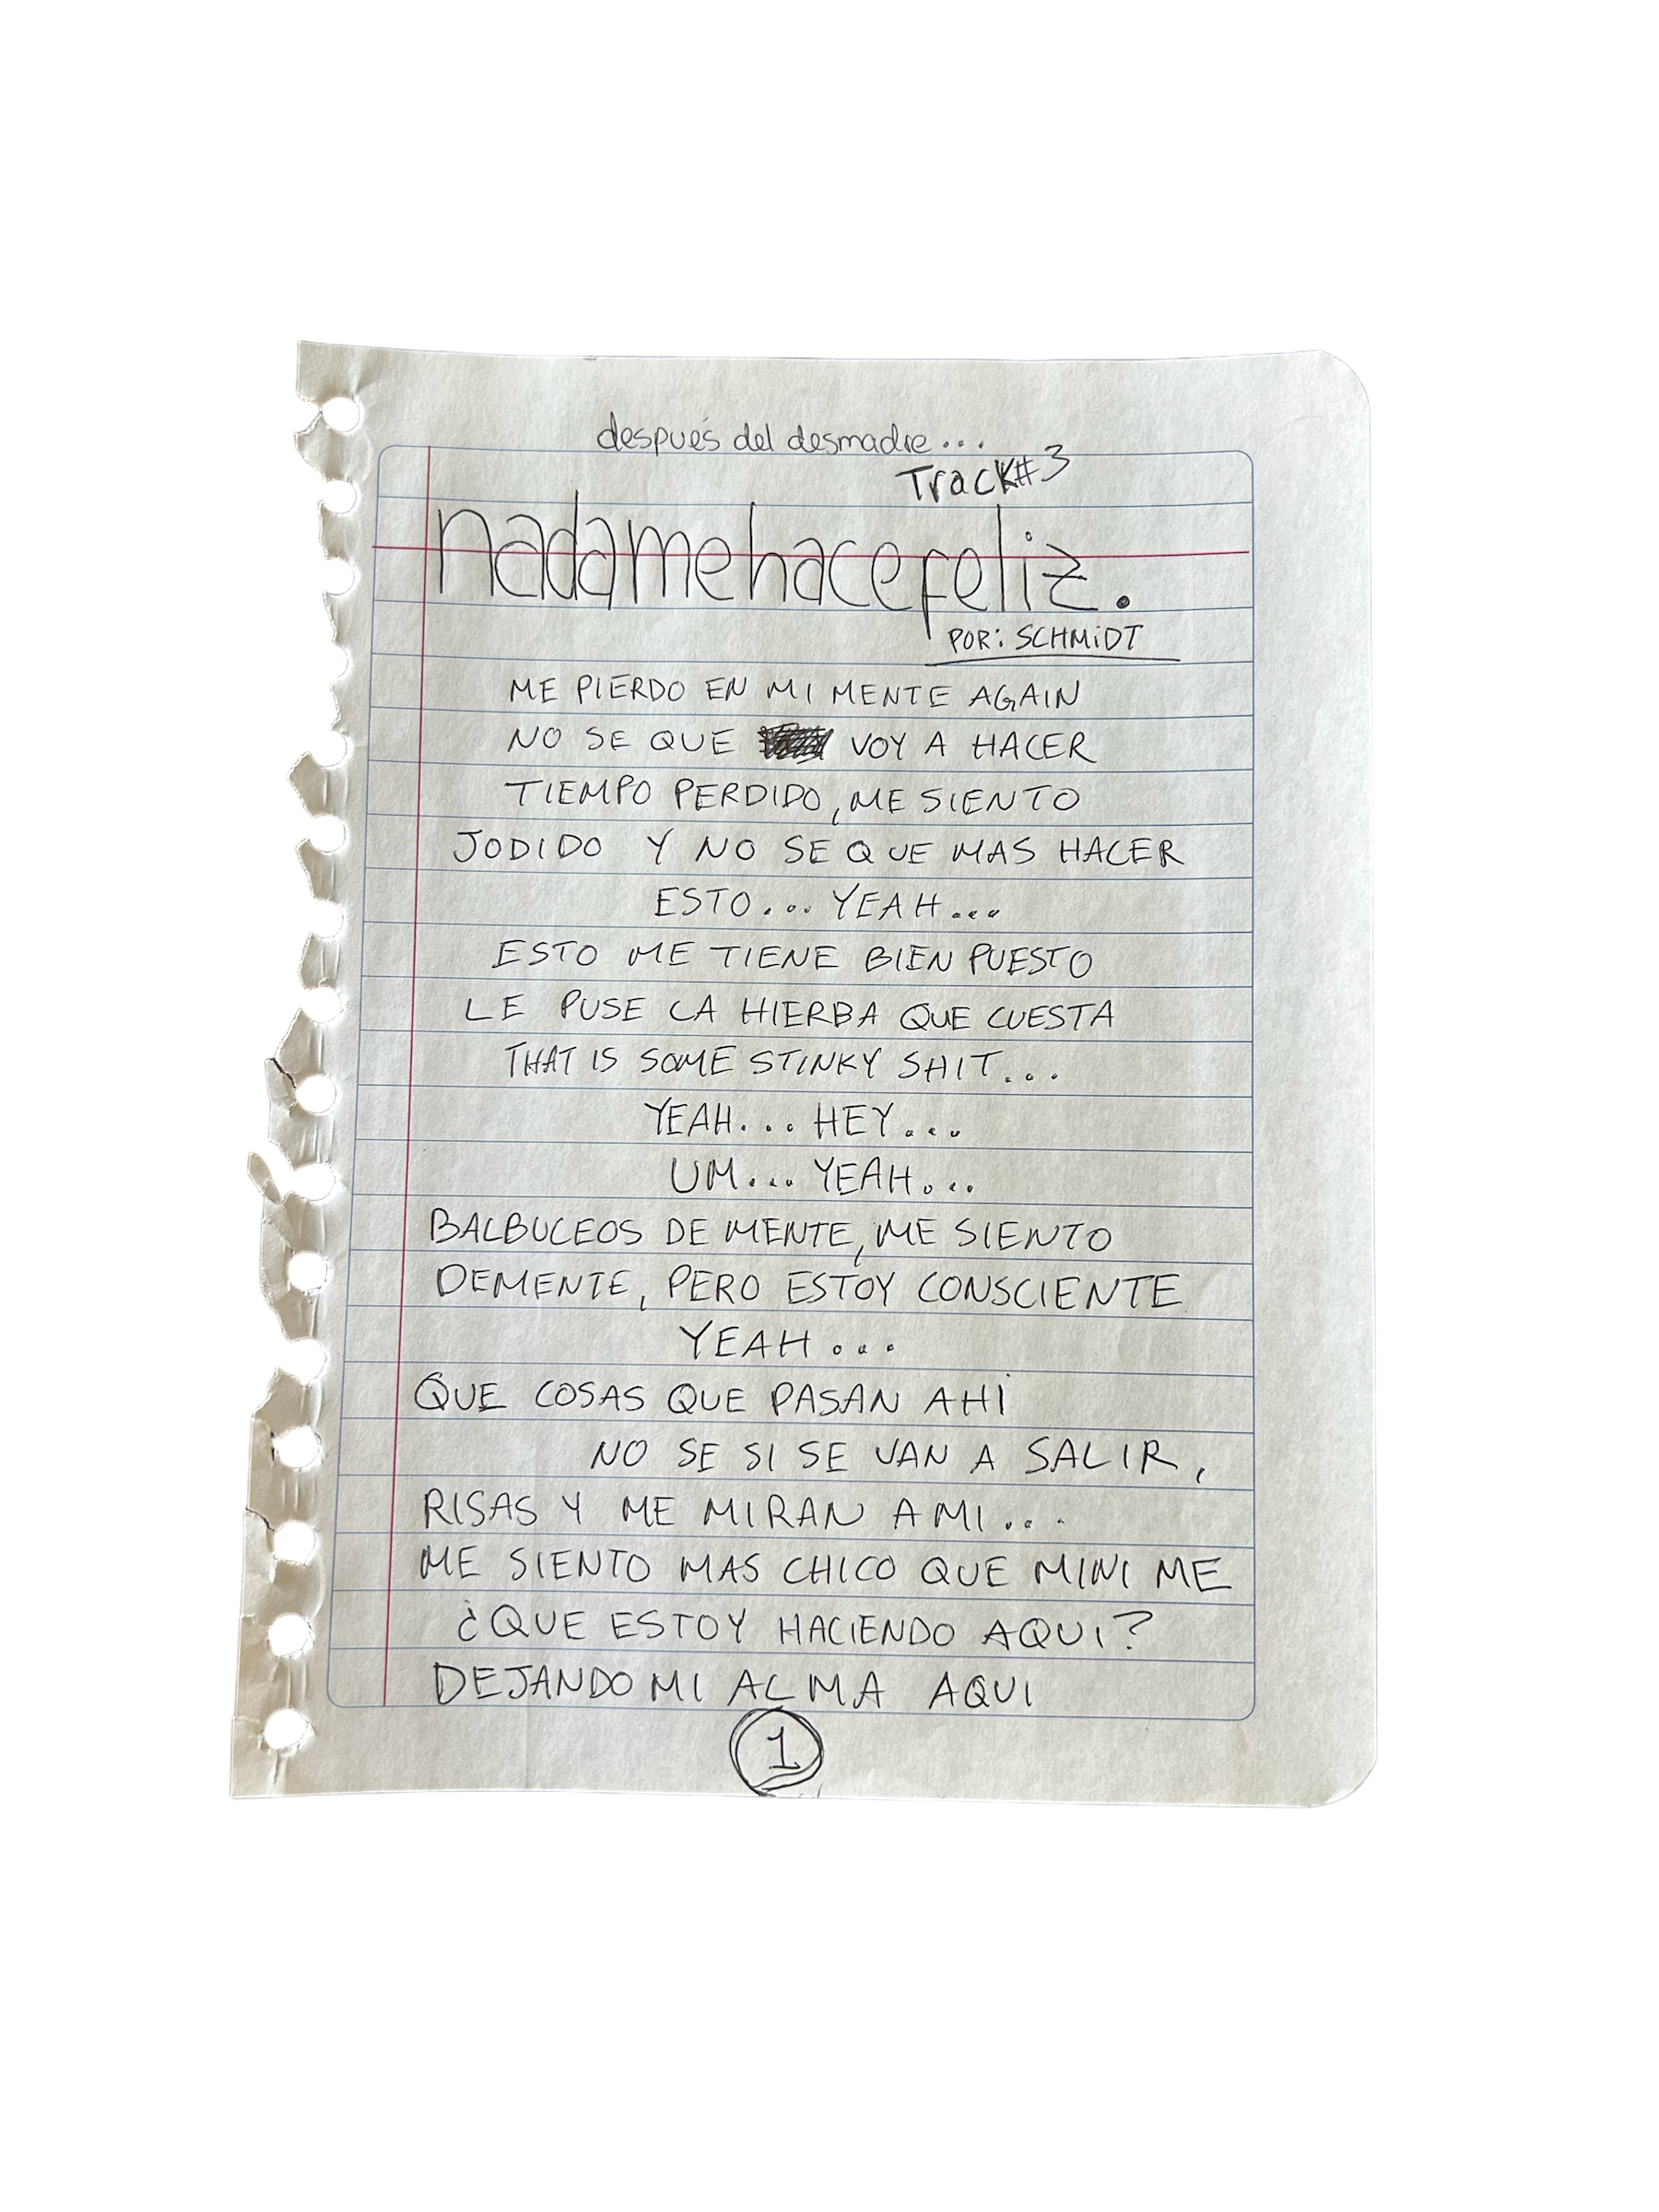 después del desmadre...
Track#3
nadamehacefeliz.
POR: SCHMiDT
ME PIERDO EN MI MENTE AGAIN
NO SE QUE VOY A HACER
TIEMPO PERDIDO, ME SIENTO
JODIDO Y NO SE QUE MAS HACER
ESTO... YEAH...
ESTO ME TIENE BIEN PUESTO
LE PUSE LA HIERBA QUE CUESTA
THAT IS SOME STINKY SHIT...
YEAH... HEY...
UM... YEAH...
BALBUCEOS DE MENTE, ME SIENTO
DEMENTE, PERO ESTOY CONSCIENTE
YEAH...
QUE COSAS QUE PASAN AHI
NO SE SI SE VAN A SALIR,
RISAS Y ME MIRAN A MI...
ME SIENTO MAS CHICO QUE MINI ME
¿QUE ESTOY HACIENDO AQUI?
DEJANDO MI ALMA AQUI
1